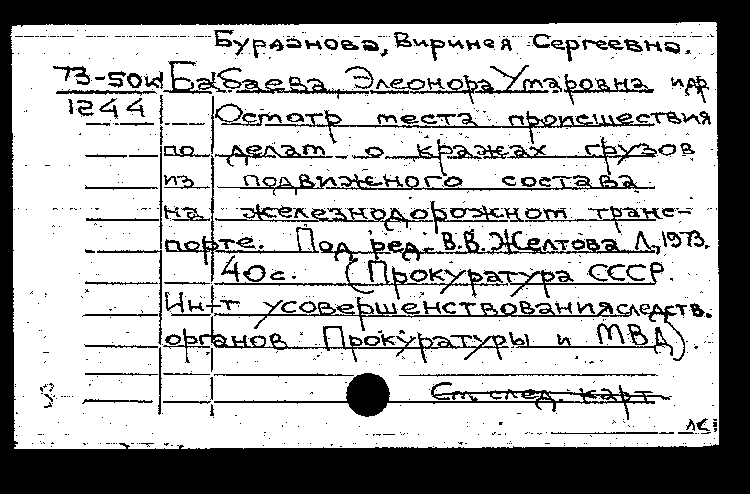 Бурданова, Виринея Сергеевна.
73-50к Бабаева, Элеонора Умаровна и др
1244 Осмотр места происшествия
по делам о кражах грузов
из подвижного состава
на железнодорожном транс-
порте. Под ред. В.В. Желтова Л., 1973.
40с. (Прокуратура СССР.
Ин-т усовершенствования следств.
органов Прокуратуры и МВД).
См. след. карт